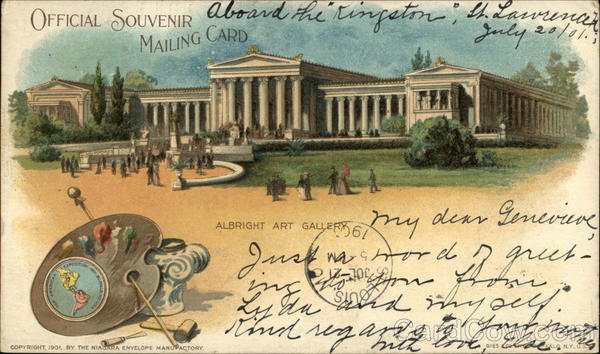 OFFICIAL SOUVENIR
MAILING CARD
Aboard the "Kingston", St. Lawrence,
July 20/01.
ALBRIGHT ART GALLERY
My dear Genevieve,
Just a word of greet-
ing to you from
Lyda and myself.
Kind regards to
With love
COPYRIGHT, 1901, BY THE NIAGARA ENVELOPE MANUFACTORY.
CardCow.com